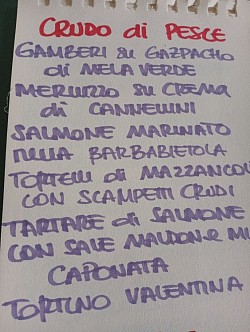 CRUDO di PESCE
GAMBERI su GAZPACHO
di MELA VERDE
MERLUZZO su CREMA
di CANNELLINI
SALMONE MARINATO
nella BARBABIETOLA
TORTELLI di MAZZANCOL
CON SCAMPETTI CRUDI
TARTARE di SALMONE
CON SALE MALDON e MI
CAPONATA
TORTINO VALENTINA